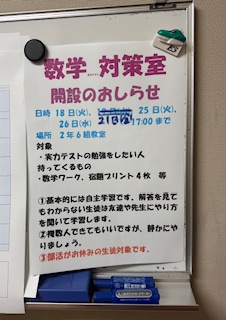 数学 対策室
開設のおしらせ
日時 18日(火)、21日(金) 25日(火)、
26日(水) 17:00まで
場所 2年6組教室
対象
・実力テストの勉強をしたい人
持ってくるもの
・数学ワーク、宿題プリント4枚 等
①基本的には自主学習です。解答を見て
もわからない生徒は友達や先生にやり方
を聞いて学習します。
②複数人できてもいいですが、静かにや
りましょう。
③部活がお休みの生徒対象です。